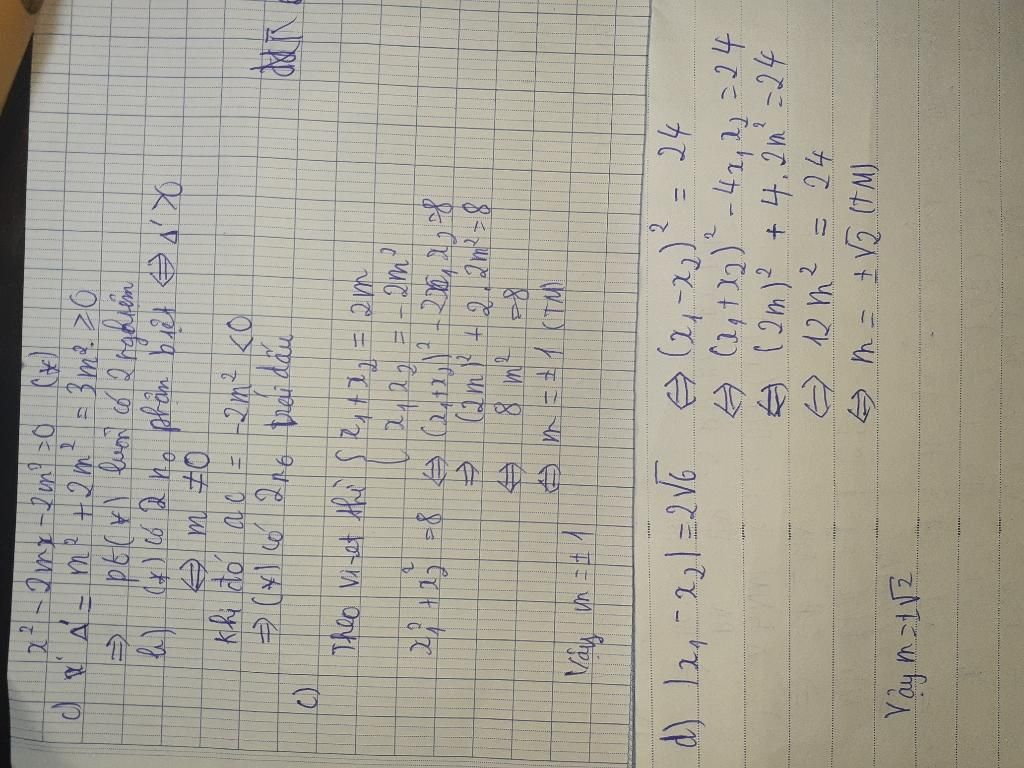 x² - 2mx - 2m² = 0 (*)
a) Δ' = m² + 2m² = 3m² ≥ 0
⇒ pt (*) luôn có 2 nghiệm
b) (*) có 2 no phân biệt ⇔ Δ' > 0
⇔ m ≠ 0
Khi đó ac = -2m² < 0
⇒ (*) có 2 no trái dấu
c)
Theo Vi-et thì { x₁ + x₂ = 2m
x₁ x₂ = -2m²
x₁² + x₂² = 8 ⇔ (x₁+x₂)² - 2x₁x₂ = 8
⇒ (2m)² + 2.2m² = 8
⇔ 8m² = 8
⇔ m = ±1 (TM)
Vậy m = ±1
d) |x₁ - x₂| = 2√6 ⇔ (x₁ - x₂)² = 24
⇔ (x₁ + x₂)² - 4x₁x₂ = 24
⇔ (2m)² + 4.2m² = 24
⇔ 12m² = 24
⇔ m = ±√2 (TM)
Vậy m = ±√2